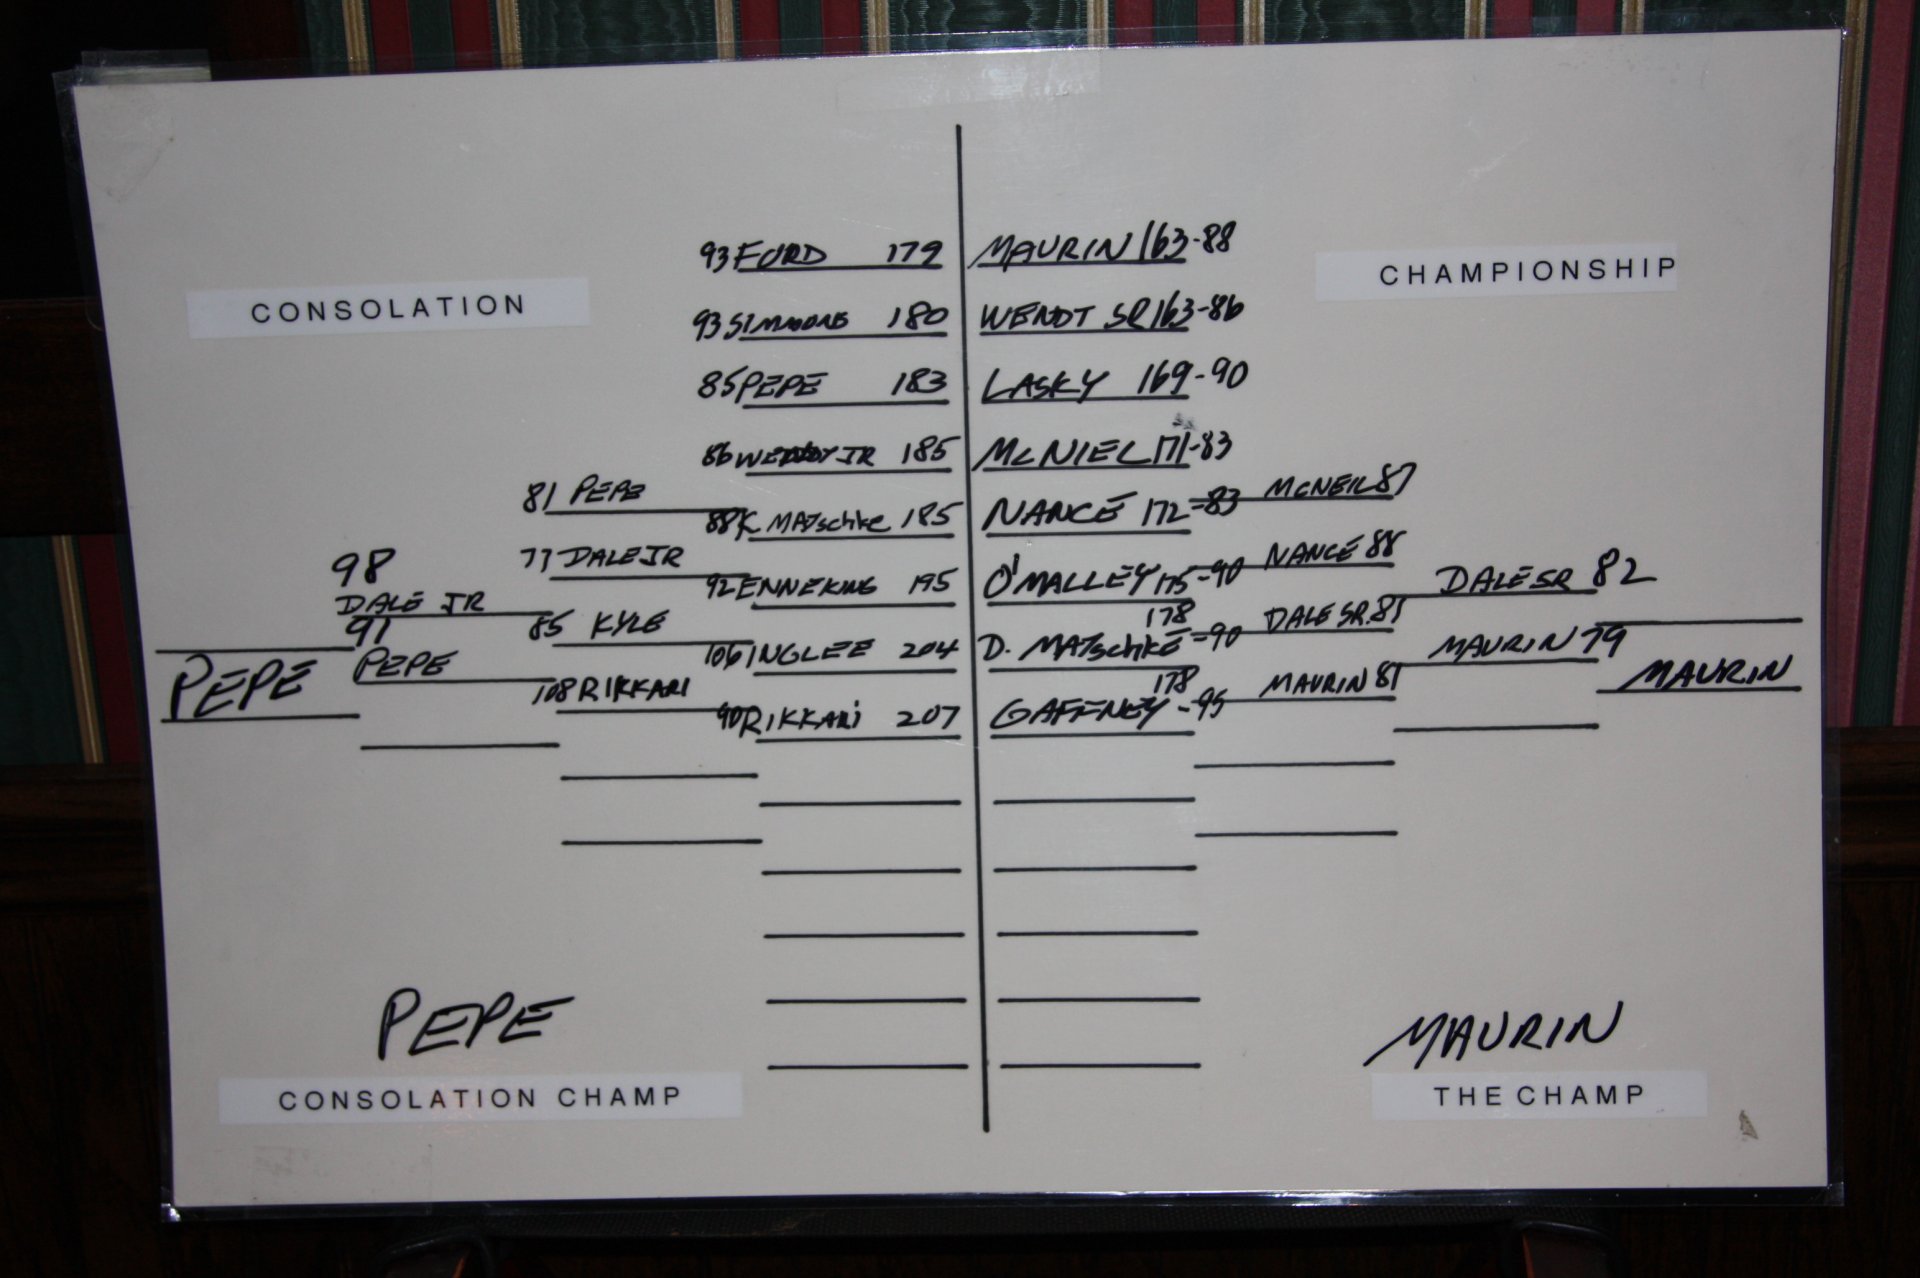 CONSOLATION
93 FORD 179
93 SIMMONS 180
85 PEPE 183
86 JR 185
88 K MATSCHKE 185
92 ENNEKING 195
106 INGLEE 204
90 RIKKARI 207
81 PEPE
77 DALE JR
85 KYLE
108 RIKKARI
98
DALE JR
91
PEPE
PEPE
PEPE
CONSOLATION CHAMP
CHAMPIONSHIP
MAURIN 163-88
WENDT SR 163-86
LASKY 169-90
McNIEL 171-83
NANCE 172-83
O'MALLEY 175-90
178
D. MATSCHKE -90
178
GAFFNEY -95
MCNEIL 87
NANCE 88
DALE SR. 81
MAURIN 81
DALE SR 82
MAURIN 79
MAURIN
MAURIN
THE CHAMP